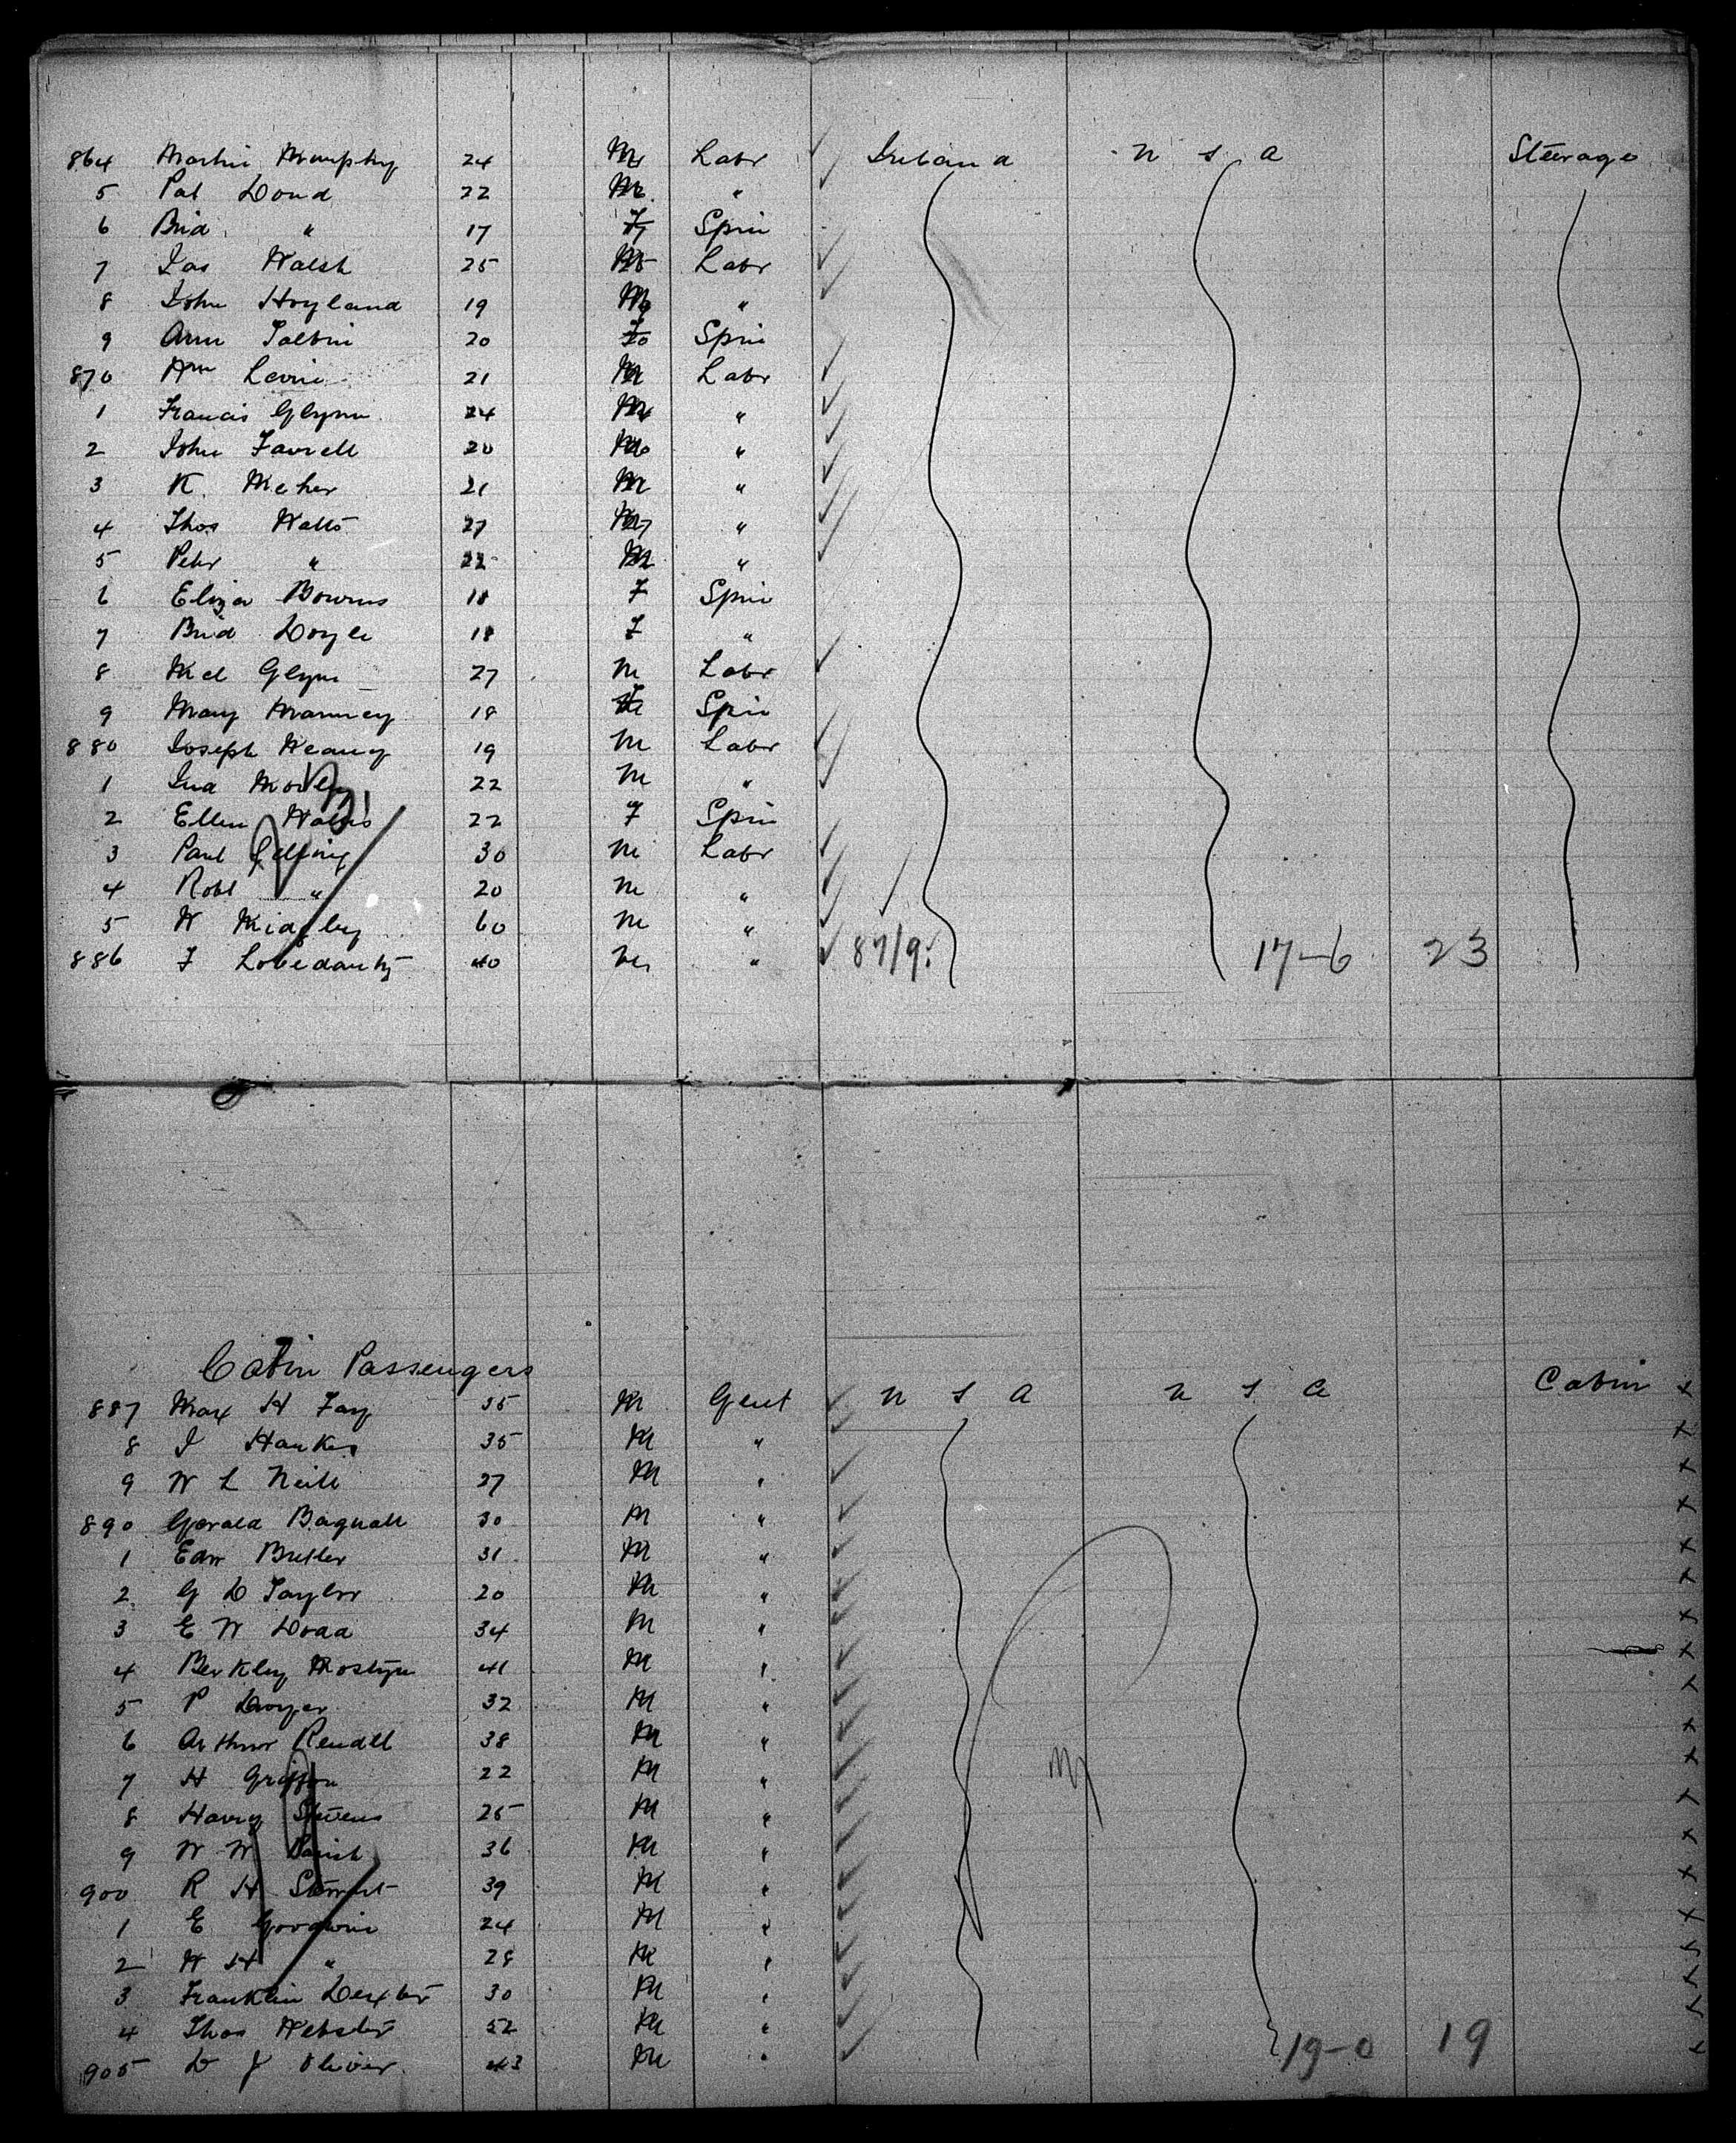 864 Martin Murphy 24 M Labr Ireland U S A Steerage
5 Pat Doud 22 M "
6 Brid " 17 F Spin
7 Jas Walsh 25 M Labr
8 John Hoyland 19 M "
9 Ann 20 F Spin
870 Wm Levine 21 M Labr
1 Francis Glynn 24 M "
2 John Farrell 20 M "
3 K. Meher 21 M "
4 Thos 27 M "
5 Peter " 22 M "
6 Eliza 18 F Spin
7 Brid Doyle 18 F "
8 Mcl Glynn 27 M Labr
9 Mary Manney 18 F Spin
880 Joseph 19 M Labr
1 22 M "
2 Ellen 22 F Spin
3 Paul 30 M Labr
4 Robt " 20 M "
5 W Midgley 60 M "
886 F 40 M " 87/9. 17-6 23
Cabin Passengers
887 Max H Fay 35 M Gent U S A U S A Cabin x
8 J Hawkes 35 M " x
9 W L Neill 27 M " x
890 Gerald Bagnall 30 M " x
1 Edw Butler 31 M " x
2 G D Taylor 20 M " x
3 E W Dodd 34 M " x
4 Berkley Mostyn 41 M " x
5 P Dwyer 32 M " x
6 Arthur Rendell 38 M " x
7 H Griffon 22 M " x
8 Harry Stevens 25 M " x
9 W W Parish 36 M " x
900 R H Stewart 39 M " x
1 E Goodwin 24 M " x
2 W H " 28 M " x
3 Franklin Dexter 30 M " x
4 Thos Webster 52 M " x
905 D J Oliver 43 M " 19-0 19 x